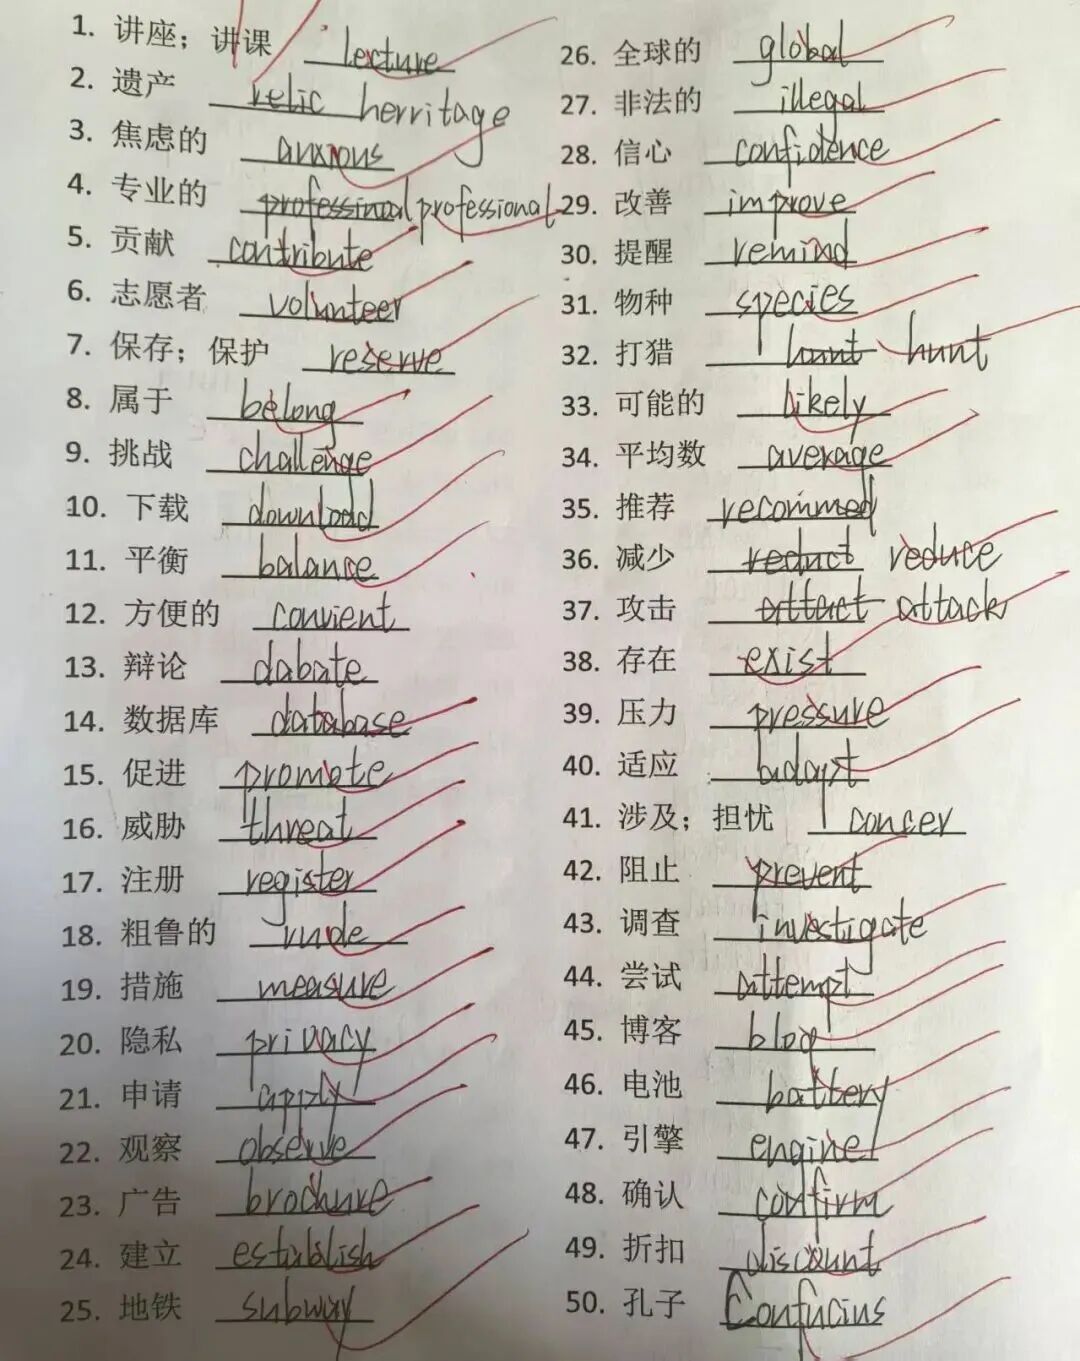 1. 讲座；讲课 lecture
2. 遗产 relic herritage
3. 焦虑的 anxious
4. 专业的 professinoal professional
5. 贡献 contribute
6. 志愿者 volunteer
7. 保存；保护 reserve
8. 属于 belong
9. 挑战 challenge
10. 下载 download
11. 平衡 balance
12. 方便的 convient
13. 辩论 dabate
14. 数据库 database
15. 促进 promote
16. 威胁 threat
17. 注册 register
18. 粗鲁的 rude
19. 措施 measure
20. 隐私 privacy
21. 申请 apply
22. 观察 observe
23. 广告 brochure
24. 建立 establish
25. 地铁 subway
26. 全球的 global
27. 非法的 illegal
28. 信心 confidence
29. 改善 improve
30. 提醒 remind
31. 物种 species
32. 打猎 hunt hunt
33. 可能的 likely
34. 平均数 average
35. 推荐 recommed
36. 减少 reduct reduce
37. 攻击 attact attack
38. 存在 exist
39. 压力 pressure
40. 适应 adapt
41. 涉及；担忧 concer
42. 阻止 prevent
43. 调查 investigate
44. 尝试 attempt
45. 博客 blog
46. 电池 battery
47. 引擎 engine
48. 确认 confirm
49. 折扣 discount
50. 孔子 Confucius